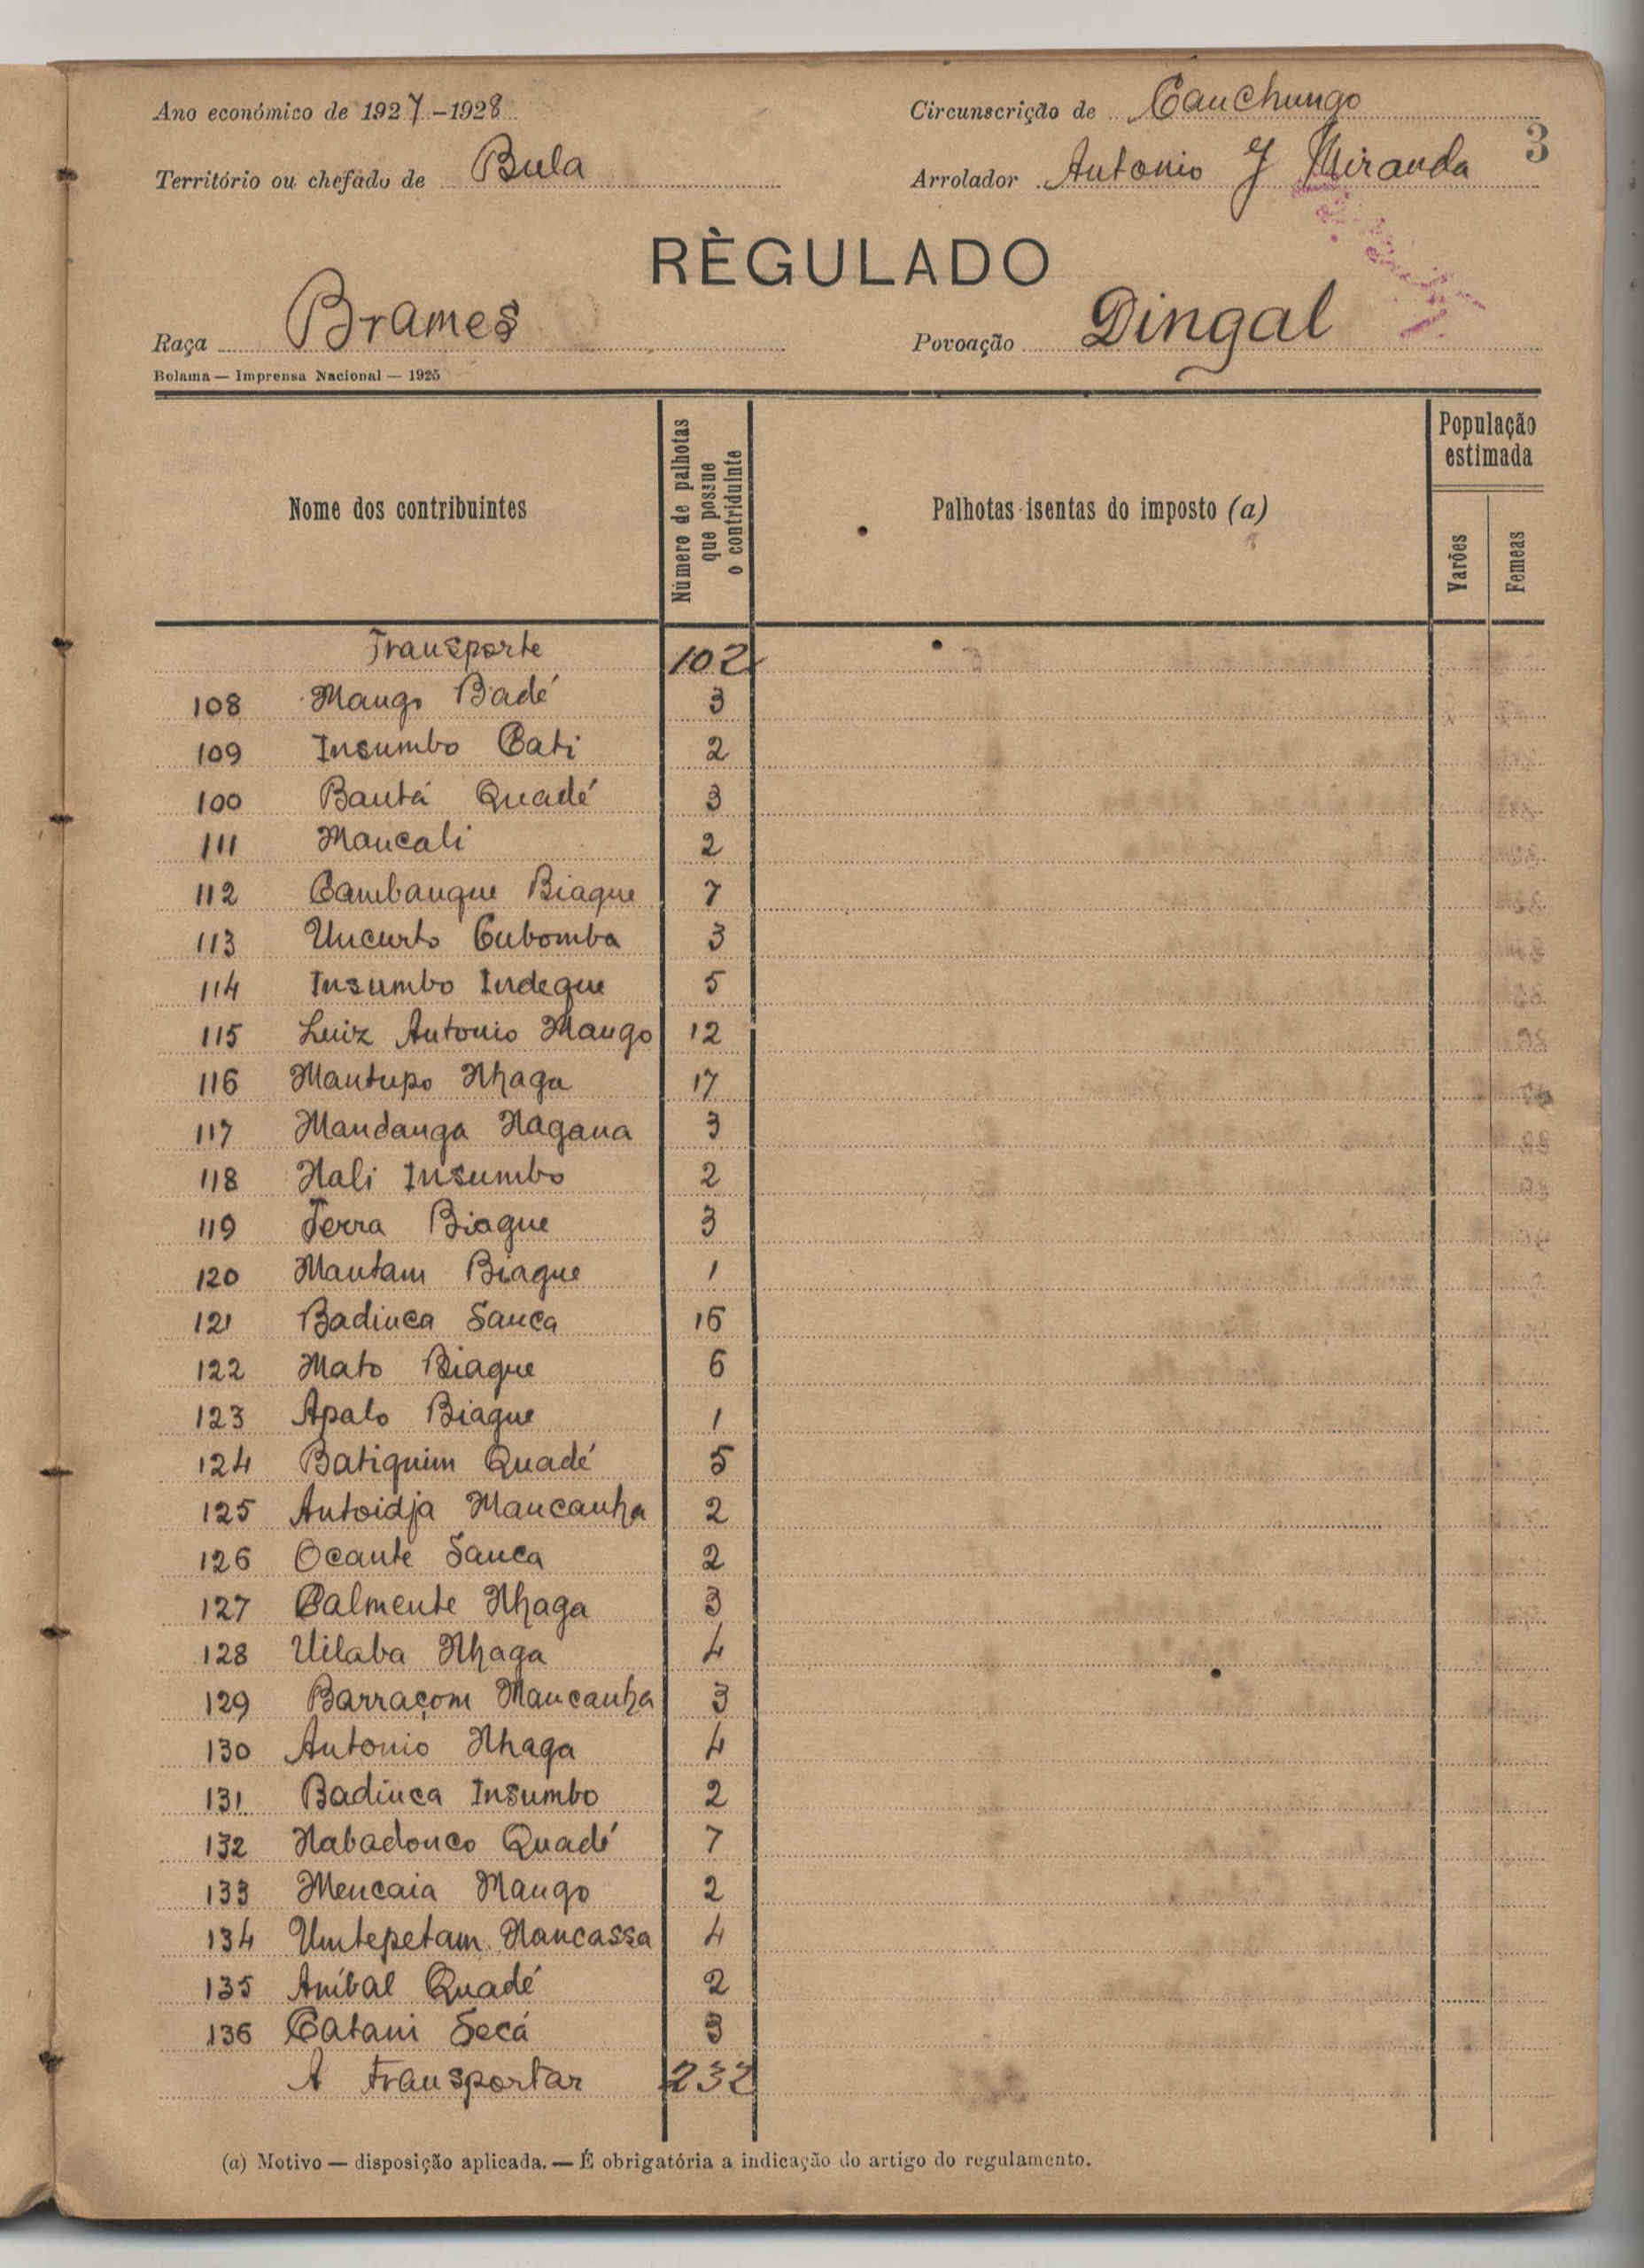 Ano económico de 1927-1928
Circunscrição de Canchungo
3
Território ou chefado de Bula
Arrolador Antonio J Miranda
RÈGULADO
Raça Brames
Povoação Dingal
Bolama — Imprensa Nacional — 1925
Nome dos contribuintes
Número de palhotas que possue o contriduinte
Palhotas isentas do imposto (a)
População estimada
Varões
Femeas
Transporte 102
108 Mango Badé 3
109 Insumbo Cati 2
100 Bantá Quadé 3
111 Mancali 2
112 Cambanque Biague 7
113 Uncurto Cubomba 3
114 Insumbo Indeque 5
115 Luiz Antonio Mango 12
116 Mantupo Nhaga 17
117 Mandanga Nagana 3
118 Nali Insumbo 2
119 Terra Biague 3
120 Mantam Biague 1
121 Badinca Sanca 16
122 Mato Biague 6
123 Apalo Biague 1
124 Batiquim Quadé 5
125 Antoidja Mancanha 2
126 Ocante Sanca 2
127 Calmente Nhaga 3
128 Uilaba Nhaga 4
129 Barraçom Mancanha 3
130 Antonio Nhaga 4
131 Badinca Insumbo 2
132 Nabadonco Quadé 7
133 Mencaia Mango 2
134 Umtepetam Nancassa 4
135 Aníbal Quadé 2
136 Catani Secá 3
A transportar 232
(a) Motivo — disposição aplicada. — É obrigatória a indicação do artigo do regulamento.